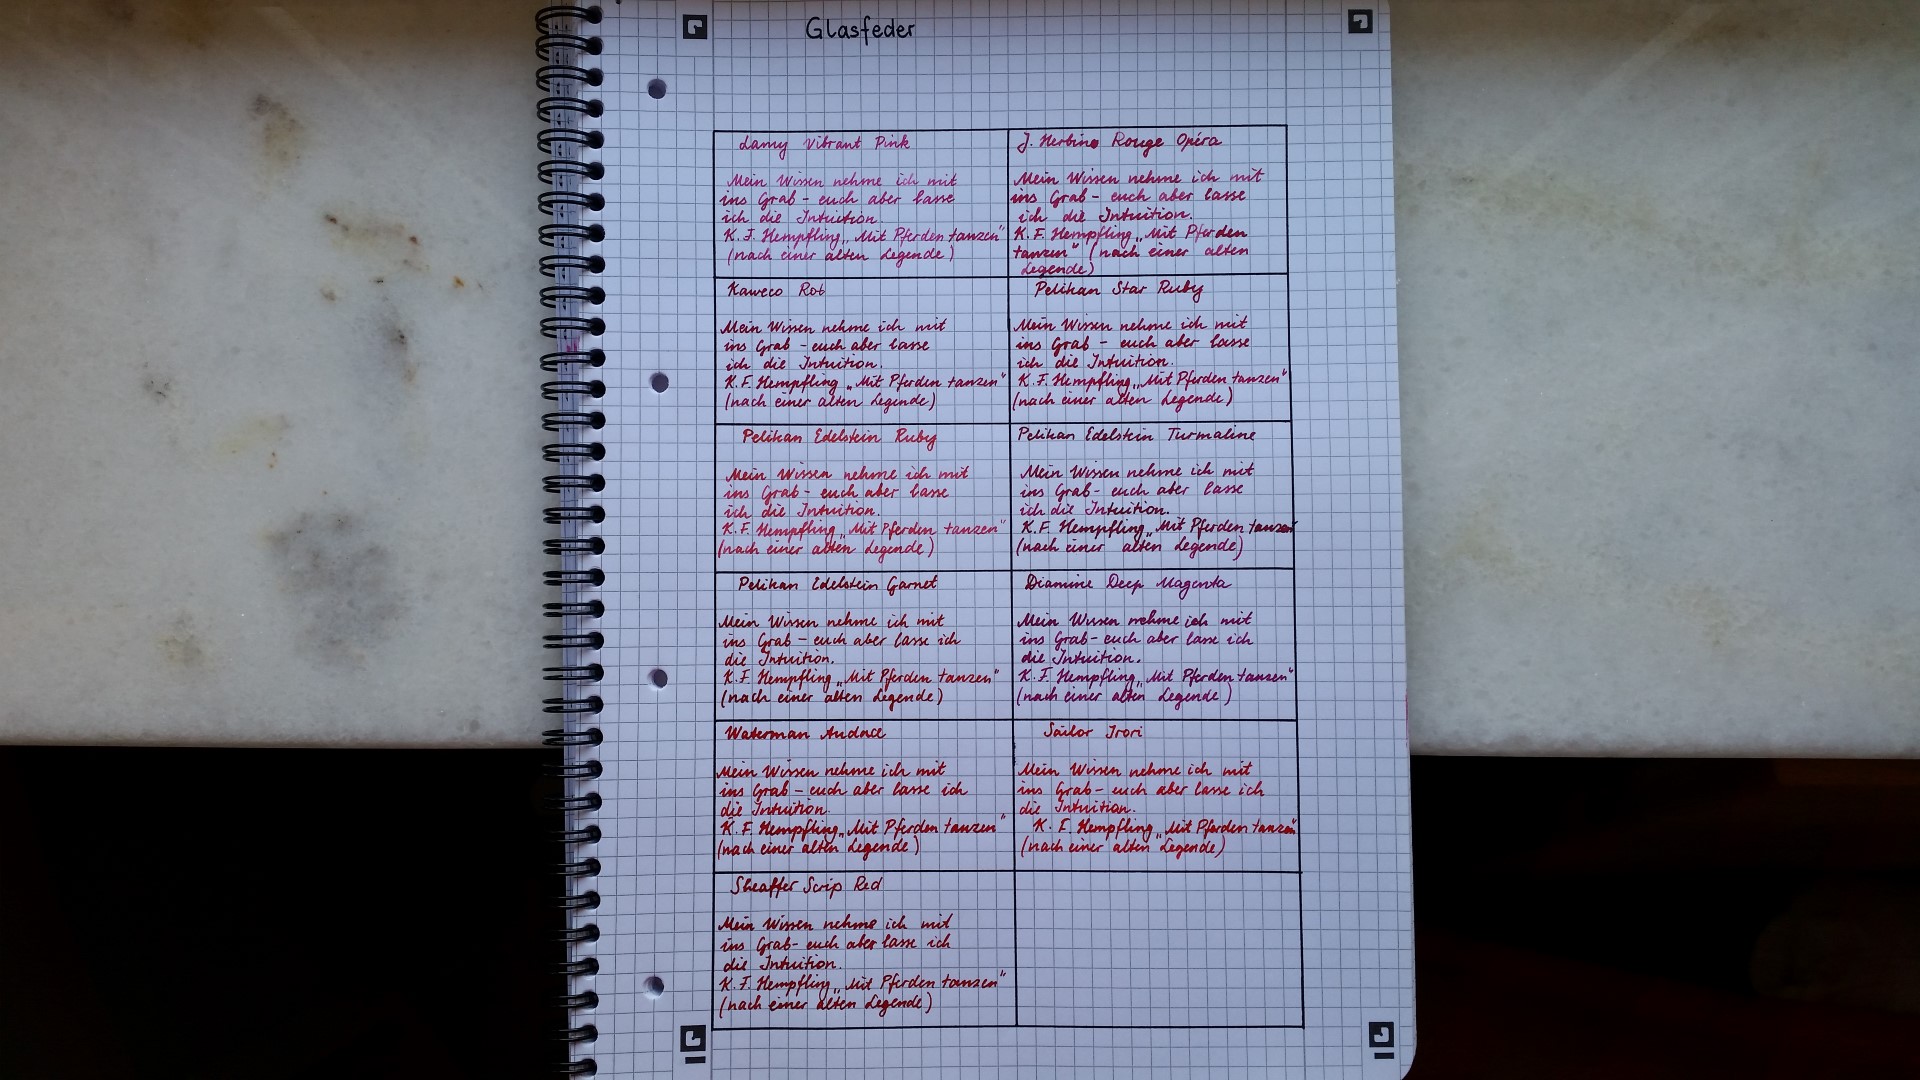 Glasfeder
Lamy Vibrant Pink
Mein Wissen nehme ich mit
ins Grab - euch aber lasse
ich die Intuition.
K. F. Hempfling „Mit Pferden tanzen"
(nach einer alten Legende)
J. Herbin Rouge Opéra
Mein Wissen nehme ich mit
ins Grab - euch aber lasse
ich die Intuition.
K. F. Hempfling „Mit Pferden
tanzen" (nach einer alten
Legende)
Kaweco Rot
Mein Wissen nehme ich mit
ins Grab - euch aber lasse
ich die Intuition.
K. F. Hempfling „Mit Pferden tanzen"
(nach einer alten Legende)
Pelikan Star Ruby
Mein Wissen nehme ich mit
ins Grab - euch aber lasse
ich die Intuition.
K. F. Hempfling „Mit Pferden tanzen"
(nach einer alten Legende)
Pelikan Edelstein Ruby
Mein Wissen nehme ich mit
ins Grab - euch aber lasse
ich die Intuition.
K. F. Hempfling „Mit Pferden tanzen"
(nach einer alten Legende)
Pelikan Edelstein Turmaline
Mein Wissen nehme ich mit
ins Grab - euch aber lasse
ich die Intuition.
K. F. Hempfling „Mit Pferden tanzen"
(nach einer alten Legende)
Pelikan Edelstein Garnet
Mein Wissen nehme ich mit
ins Grab - euch aber lasse ich
die Intuition.
K. F. Hempfling „Mit Pferden tanzen"
(nach einer alten Legende)
Diamine Deep Magenta
Mein Wissen nehme ich mit
ins Grab - euch aber lasse ich
die Intuition.
K. F. Hempfling „Mit Pferden tanzen"
(nach einer alten Legende)
Waterman Audace
Mein Wissen nehme ich mit
ins Grab - euch aber lasse ich
die Intuition.
K. F. Hempfling „Mit Pferden tanzen"
(nach einer alten Legende)
Sailor Irori
Mein Wissen nehme ich mit
ins Grab - euch aber lasse ich
die Intuition.
K. F. Hempfling „Mit Pferden tanzen"
(nach einer alten Legende)
Sheaffer Scrip Red
Mein Wissen nehme ich mit
ins Grab - euch aber lasse ich
die Intuition.
K. F. Hempfling „Mit Pferden tanzen"
(nach einer alten Legende)